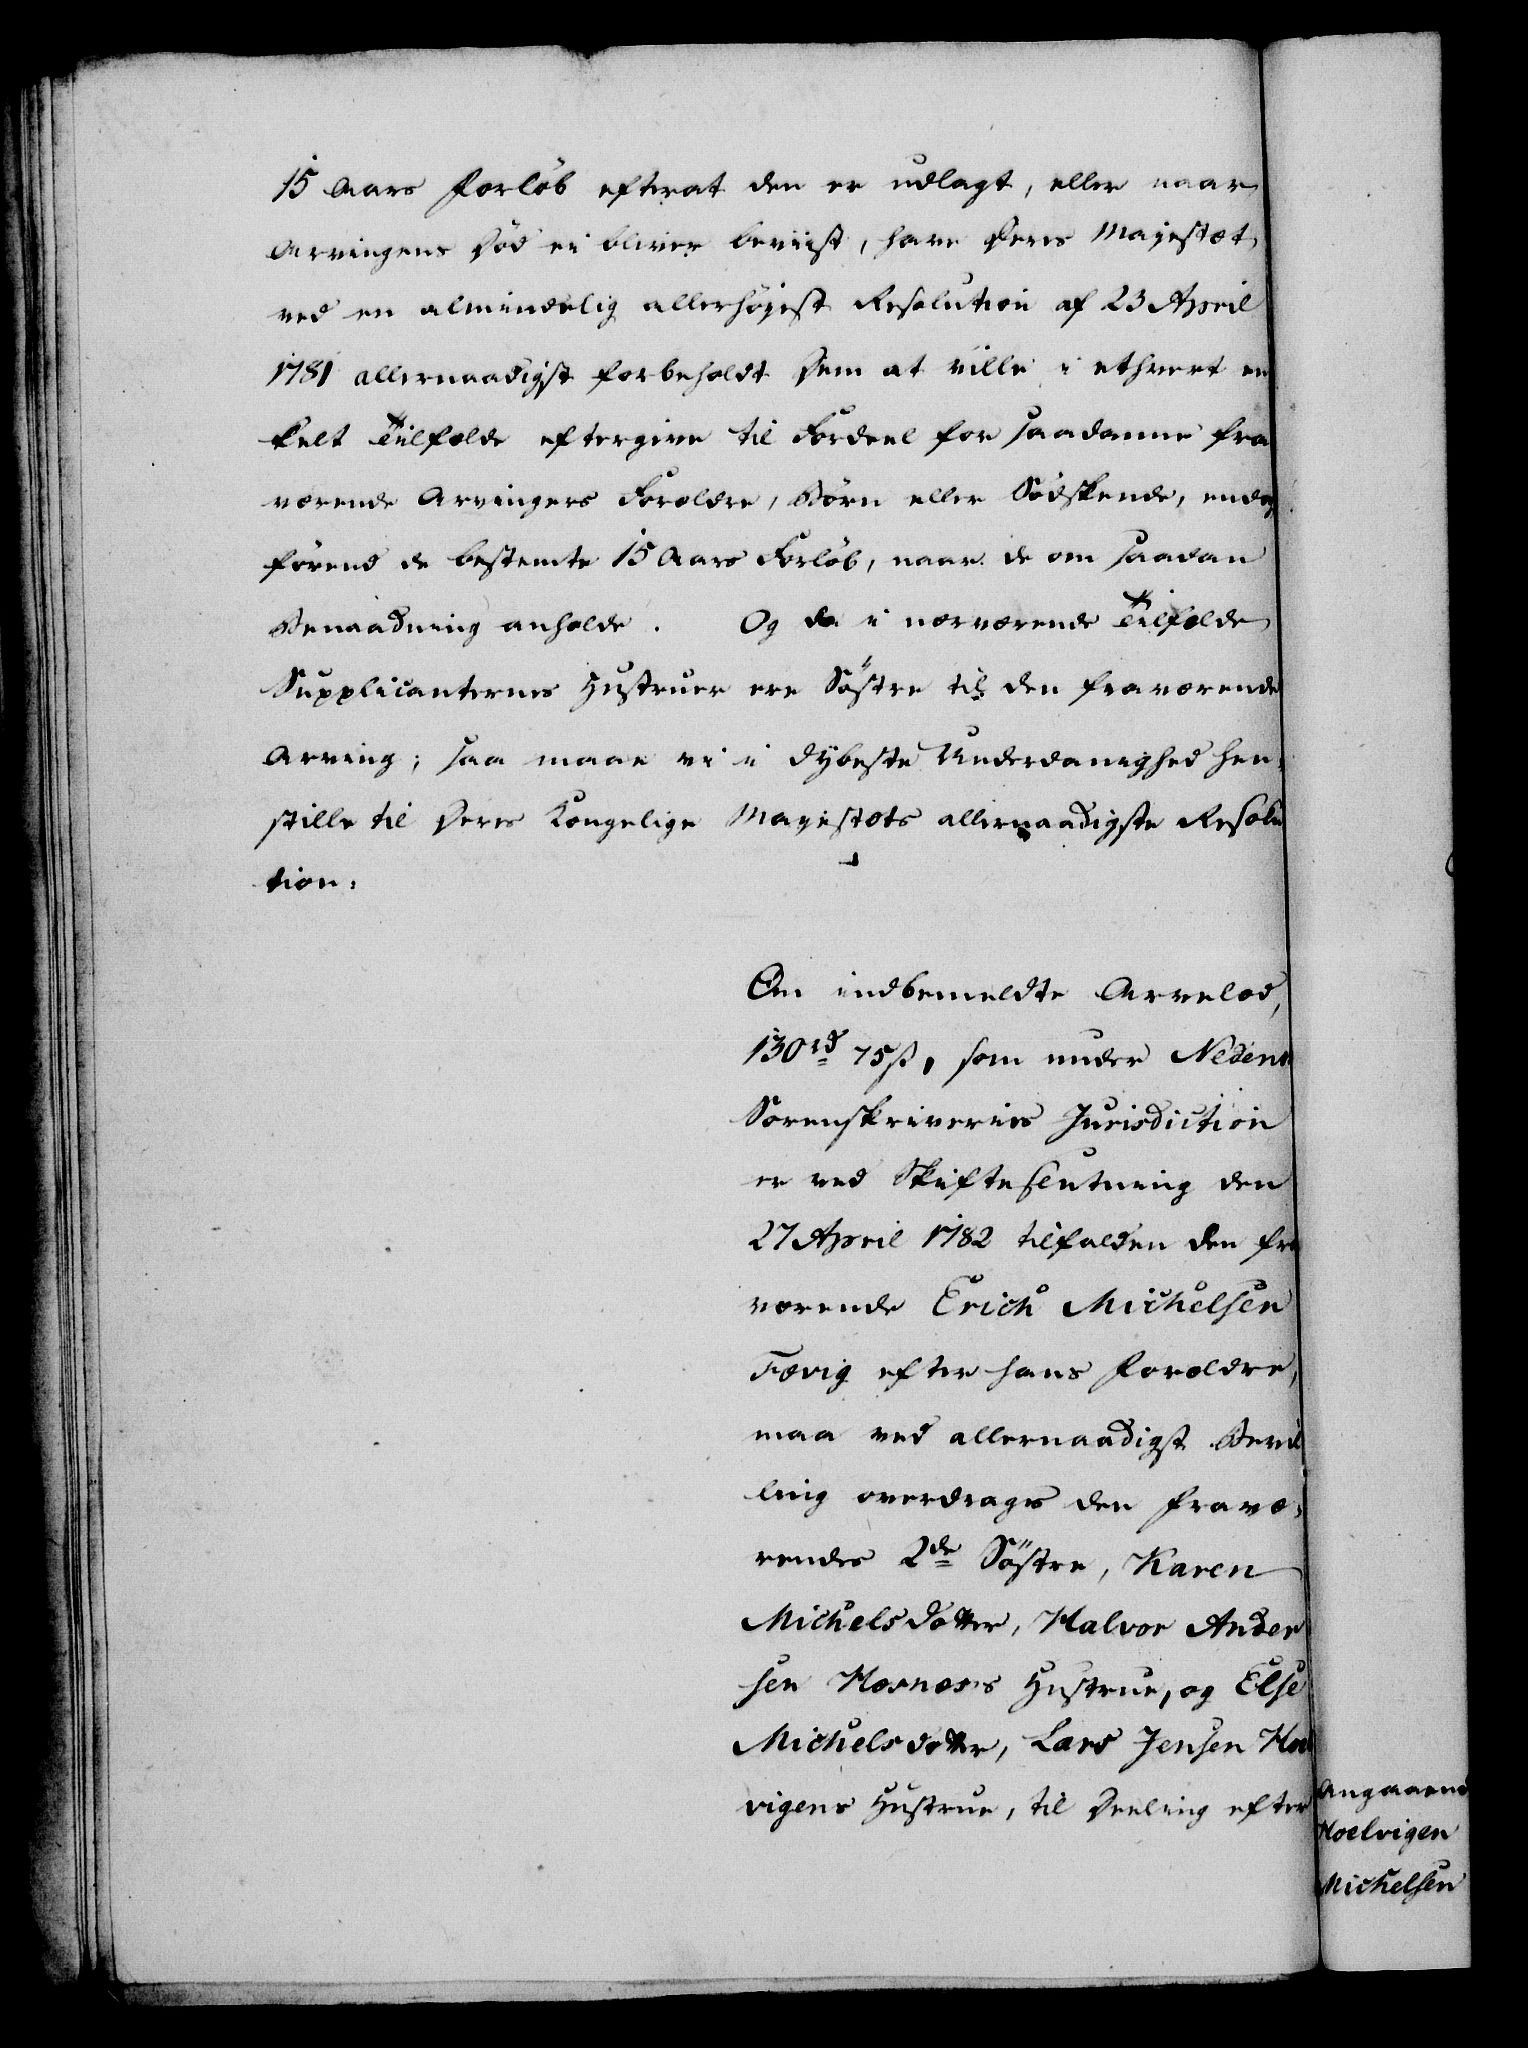 15 Aars Forløb efterat den er udlagt, eller naar
Arvingens Død ei bliver beviist, have Deres Majestæt
ved en almindelig allerhøjest Resolution af 23 April
1781 allernaadigst forbeholdt Dem at ville i ethvert en
kelt Tilfælde eftergive til Fordeel for saadanne fra
værende Arvingers Forældre, Børn eller Sødskende, endog
førend de bestemte 15 Aars Forløb, naar de om saadan
Benaadning anholde. Og da i nærværende Tilfælde
Supplicanternes Hustruer ere Søstre til den fraværende
Arving; saa maae vi i dybeste Underdanighed hen-
stille til Deres Kongelige Majestæts allernaadigste Resolu
tion:
Om indbemeldte Arvelod,
130 rd 75 ß, som under Nedenes
Sorenskriveries Jurisdiction
er ved Skiftesslutning den
27 April 1782 tilfalden den fra
værende Erich Michelsen
Fævig efter hans Forældre,
maa ved allernaadigst Bevil
ling overdrages den fravæ-
rendes 2de Søstre, Karen
Michelsdotter, Halvor Ander
sen Hasnæs's Hustrue, og Else
Michelsdotter, Lars Jensen Hoel
vigens Hustrue, til Deeling efter
Angaaend
Hoelvigen
Michelsen